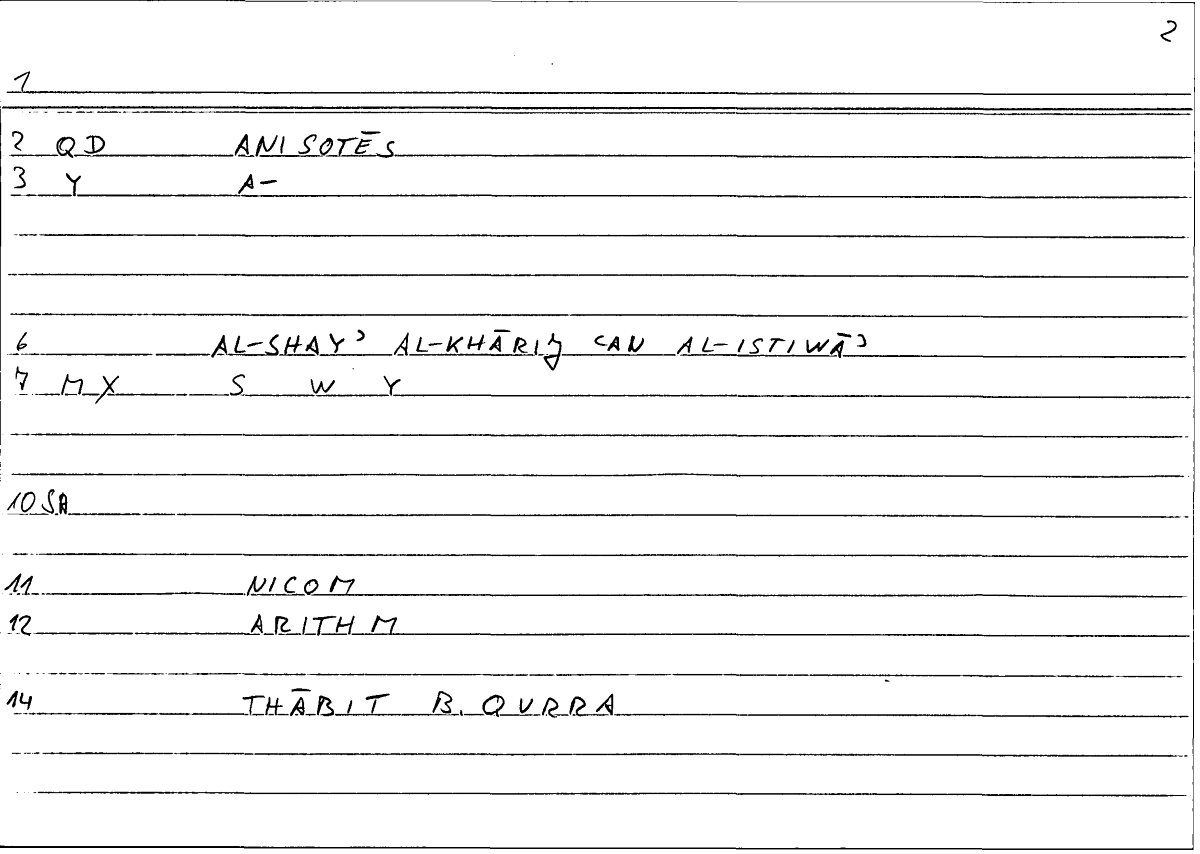 2
1
2 QD ANISOTĒS
3 Y A-
6 AL-SHAYʾ AL-KHĀRIJ ʿAN AL-ISTIWĀʾ
7 MX S W Y
10 SA
11 NICOM
12 ARITHM
14 THĀBIT B. QURRA